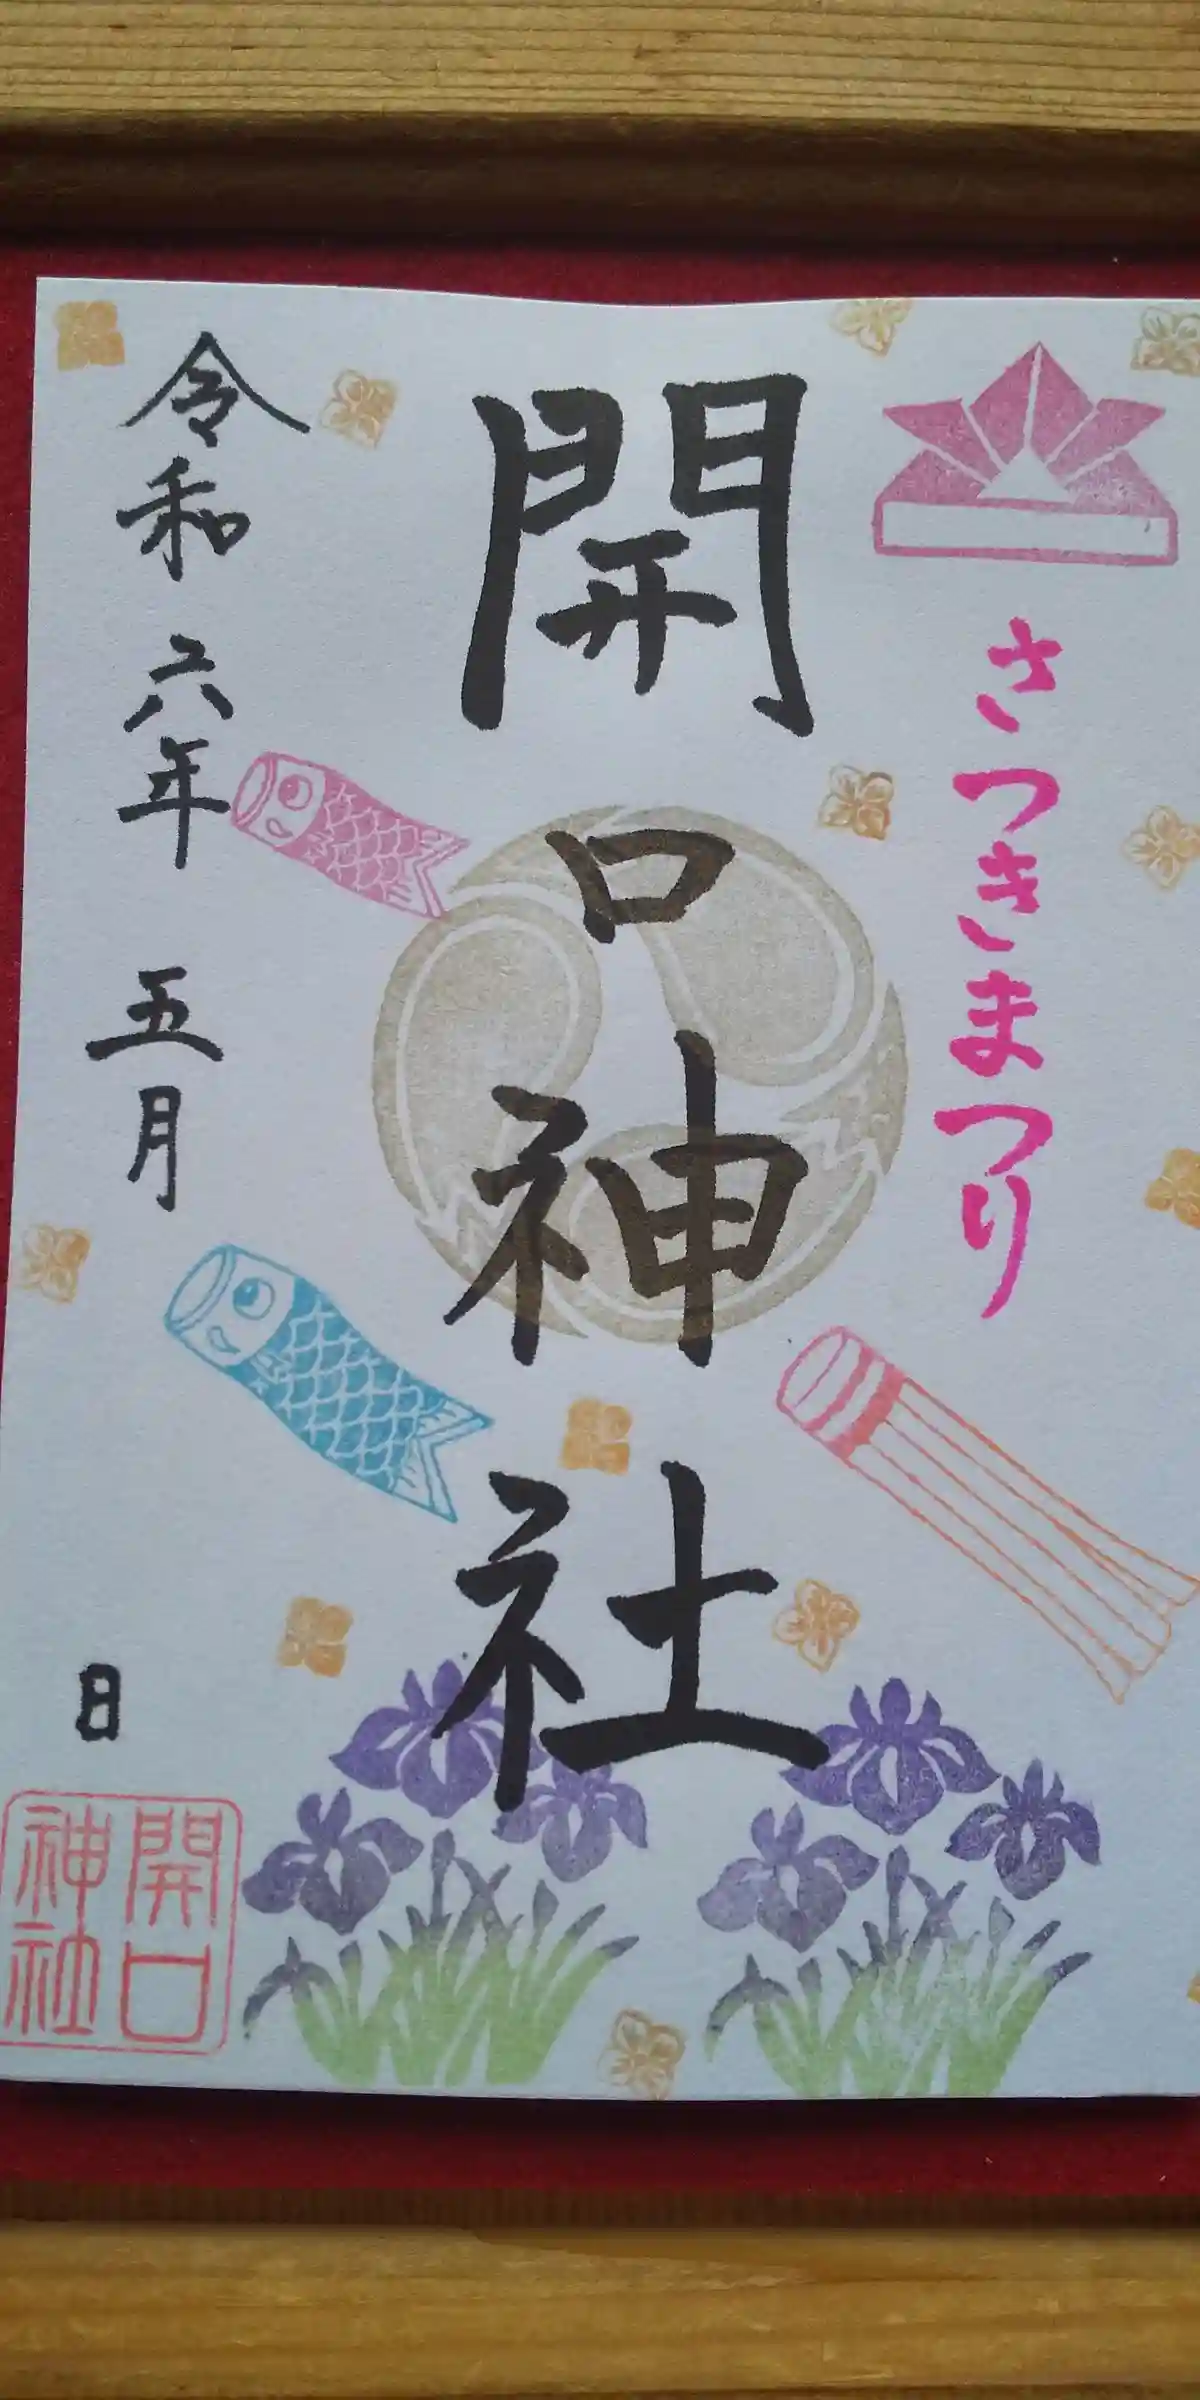 さつきまつり
開口神社
令和六年 五月 日
開口
神社